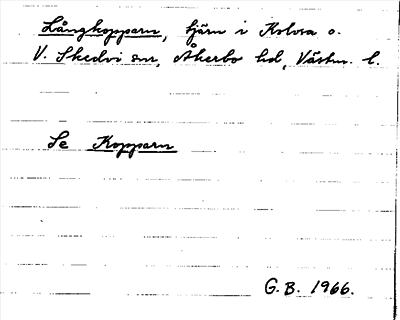 Långkopparn, tjärn i Kolsva o.
V. Skedvi snr, Åkerbo hd, Västm. l.
Se Kopparn
G.B. 1966.